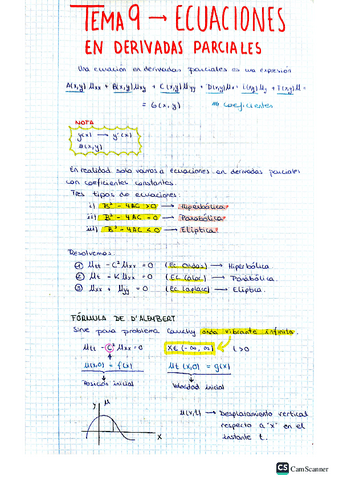 TEMA 9 → ECUACIONES
EN DERIVADAS PARCIALES
Una ecuación en derivadas parciales es una expresión
A(x,y) Uxx + B(x,y) Uxy + C(x,y) Uyy + D(x,y) Ux + E(x,y) Uy + F(x,y) U =
= G(x,y) ⇒ coeficientes
NOTA
y(x) → y'(x)
u(x,y)
En realidad solo vamos a ecuaciones en derivadas parciales
con coeficientes constantes.
Tres tipos de ecuaciones:
i) B² - 4AC > 0 → Hiperbólica
ii) B² - 4AC = 0 → Parabólica
iii) B² - 4AC < 0 → Elíptica
Resolvemos:
① Utt - C² Uxx = 0 (Ec. Ondas) → Hiperbólica.
② Ut - K Uxx = 0 (Ec. Calor) → Parabólica.
③ Uxx + Uyy = 0 (Ec. Laplace) → Elíptica.
FÓRMULA DE D'ALEMBERT
Sirve para problema Cauchy onda vibrante infinita.
Utt - C² Uxx = 0 x ∈ (-∞, ∞) t > 0
U(x,0) = f(x) Ut (x,0) = g(x)
Posición inicial Velocidad inicial
y U
x
U(x,t) → Desplazamiento vertical
respecto a "x" en el
instante t.
CS CamScanner